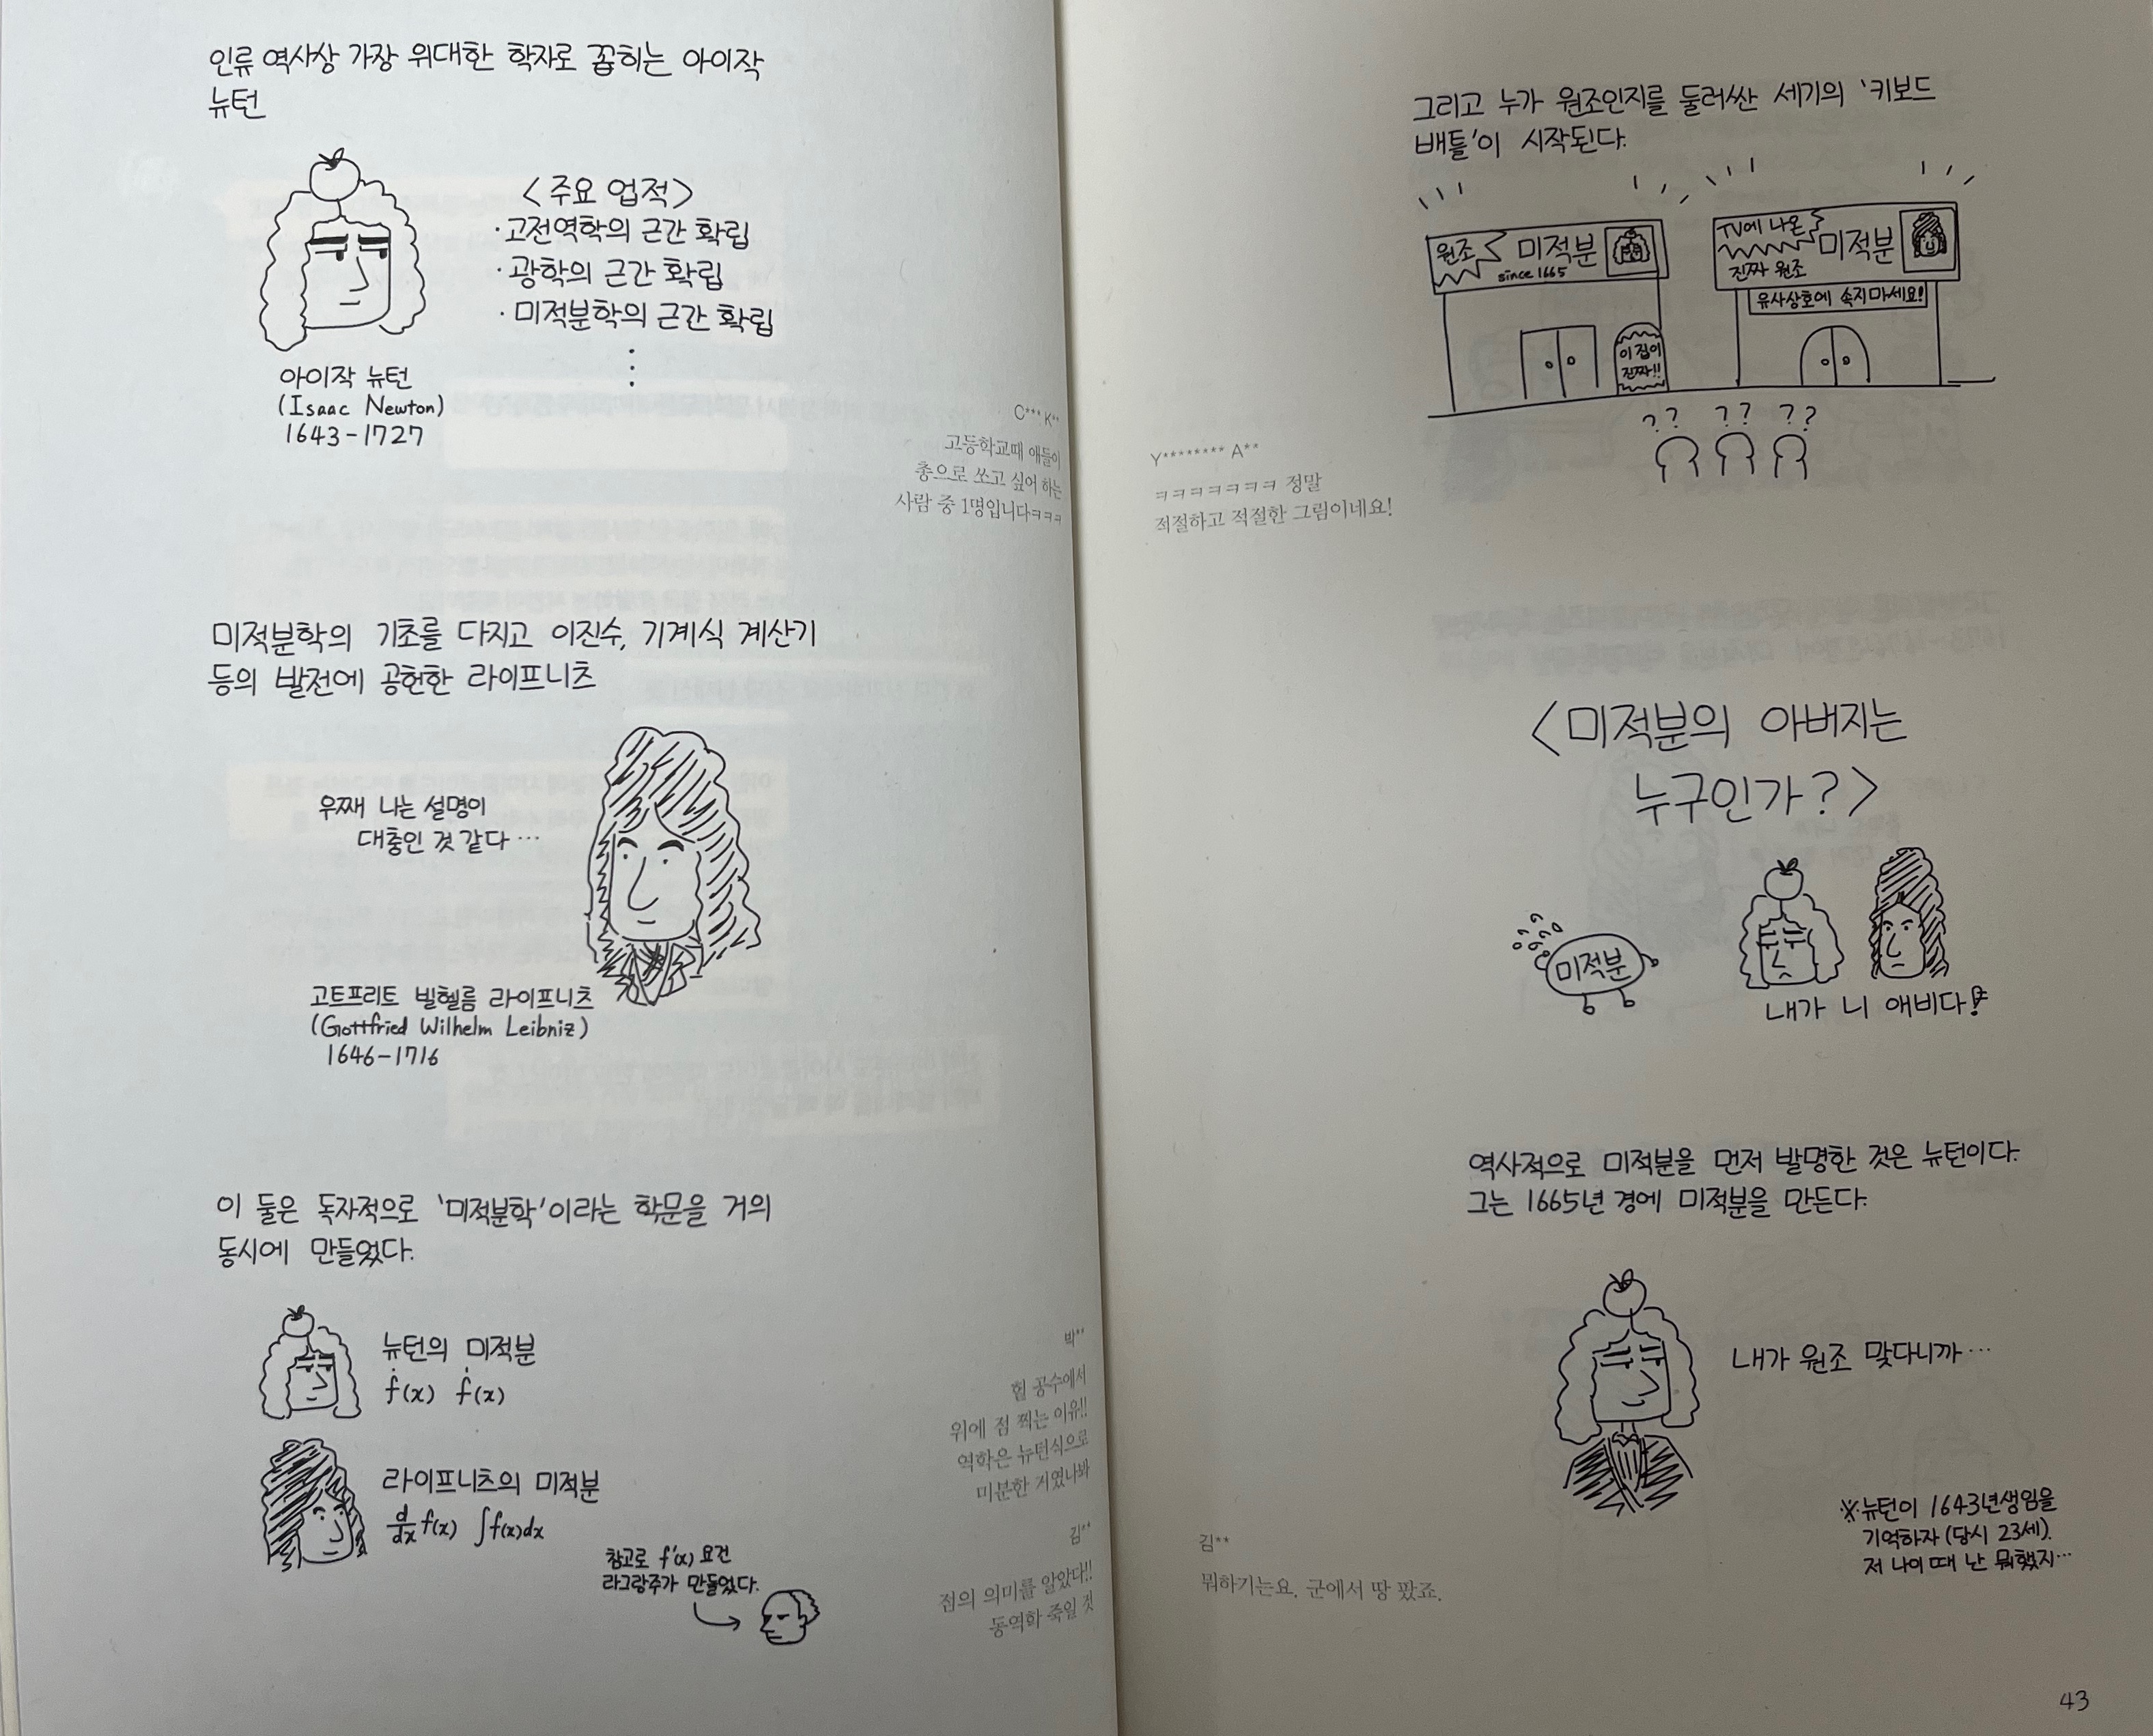 인류 역사상 가장 위대한 학자로 꼽히는 아이작
뉴턴
<주요 업적>
·고전역학의 근간 확립
·광학의 근간 확립
·미적분학의 근간 확립
아이작 뉴턴
(Isaac Newton)
1643-1727
C*** K**
고등학교때 애들이
총으로 쏘고 싶어 하는
사람 중 1명입니다ㅋㅋㅋ
미적분학의 기초를 다지고 이진수, 기계식 계산기
등의 발전에 공헌한 라이프니츠
우째 나는 설명이
대충인 것 같다…
고트프리트 빌헬름 라이프니츠
(Gottfried Wilhelm Leibniz)
1646-1716
이 둘은 독자적으로 '미적분학'이라는 학문을 거의
동시에 만들었다.
뉴턴의 미적분
ḟ(x) ḟ́(x)
라이프니츠의 미적분
d/dx f(x) ∫f(x)dx
참고로 f'(x) 요건
라그랑주가 만들었다.
박**
헐 공수에서
위에 점 찍는 이유!!
역학은 뉴턴식으로
미분한 거였나봐
김**
점의 의미를 알았다!!
동역학 죽일 것
그리고 누가 원조인지를 둘러싼 세기의 '키보드
배틀'이 시작된다.
원조 미적분
since 1665
이 집이
진짜!!
TV에 나온 미적분
진짜 원조
유사상호에 속지마세요!
?? ?? ??
Y******** A**
ㅋㅋㅋㅋㅋㅋㅋ 정말
적절하고 적절한 그림이네요!
<미적분의 아버지는
누구인가?>
미적분
내가 니 애비다!
역사적으로 미적분을 먼저 발명한 것은 뉴턴이다.
그는 1665년 경에 미적분을 만든다.
내가 원조 맞다니까…
※뉴턴이 1643년생임을
기억하자(당시 23세).
저 나이 때 난 뭐했지…
김**
뭐하기는요. 군에서 땅 팠죠.
43